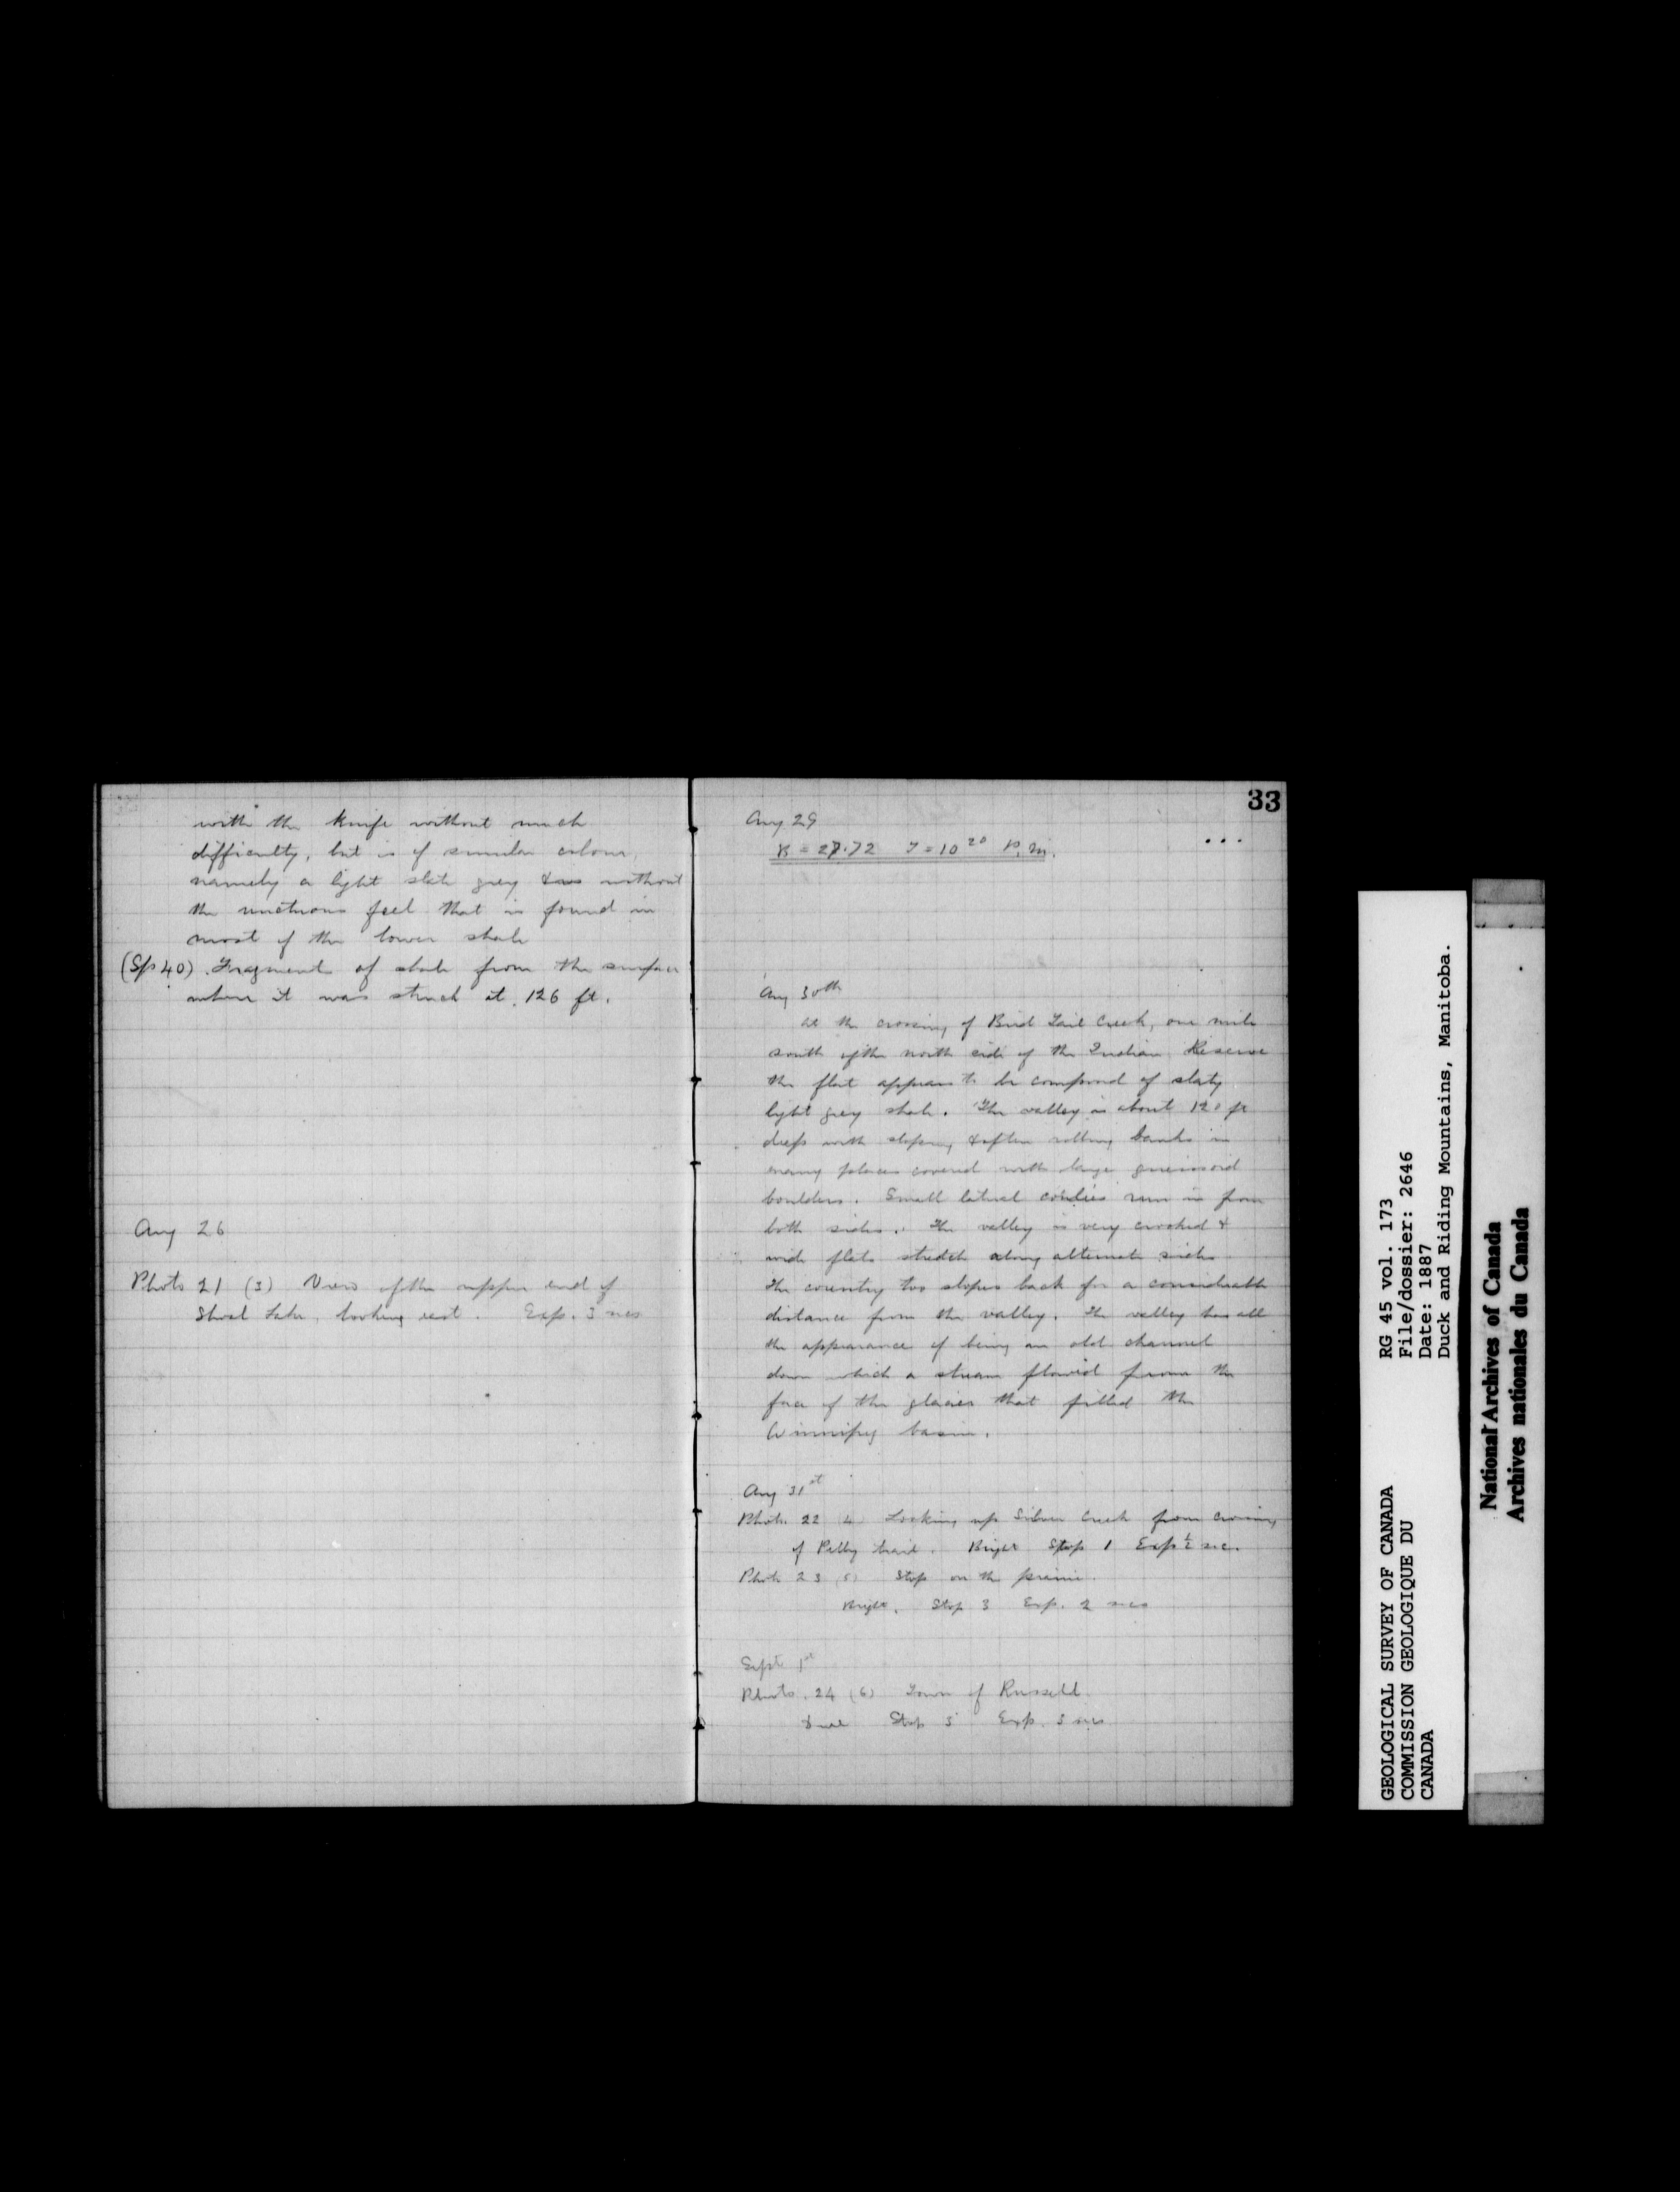 with the knife without much
difficulty, but is of similar colour,
namely a light slate grey & without
the unctuous feel that is found in
most of the lower shale
(Sp 40). Fragments of shale from the surface
where it was struck at 126 ft.
Aug 26
Photo 21 (3) View of the upper end of
Shoal Lake, looking east. Exp. 3 secs
33
Aug 29
B = 27.72 T = 10 20 P.M.
Aug 30th
At the crossing of Bird Tail Creek, one mile
south of the north side of the Indian Reserve
the flat appears to be composed of slaty
light grey shale. The valley is about 120 ft
deep with sloping & often rolling banks in
many places covered with large gneissoid
boulders. Small lateral coulies run in from
both sides. The valley is very crooked &
wide flats stretch along alternate sides
The country too slopes back for a considerable
distance from the valley. The valley has all
the appearance of being an old channel
down which a stream flowed from the
face of the glacier that filled the
Winnipeg basin.
Aug 31st
Photo 22 (4) Looking up Silver Creek from crossing
of Pelly trail. Bright Stop 1 Exp ½ sec.
Photo 23 (5) Stop on the prairie.
Bright. Stop 3 Exp. 2 secs
Sept 1st
Photo. 24 (6) Town of Russell
Stop 3 Exp. 3 secs
GEOLOGICAL SURVEY OF CANADA
COMMISSION GEOLOGIQUE DU
CANADA
RG 45 vol. 173
File/dossier: 2646
Date: 1887
Duck and Riding Mountains, Manitoba.
National Archives of Canada
Archives nationales du Canada